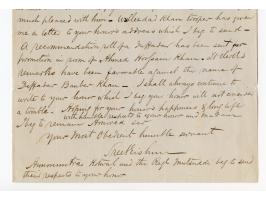 much pleased with him - Walleedad Khan Trooper has given
me a letter to your honors address which I beg to send -
A recommendation roll of a Duffadar has been sent for
promotion in room of Ahmed Hossein Khan. All
remarks have been favorable against the name of
Duffadar Bauber Khan. I shall always continue to
write to your honor which I beg your honor will not consider
a trouble. Hoping for your honors happiness & long life
with humble respects to your honor and
I beg to remain Honored Sir
Your Most Obedient humble servant
and the Regl beg to send
their respects to your honor